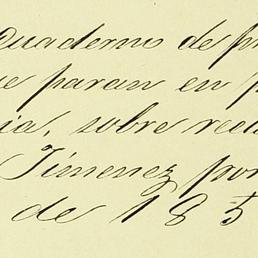 Quaderno de pr
ue paran en p
ia, sobre recla
Jimenez por
de 185